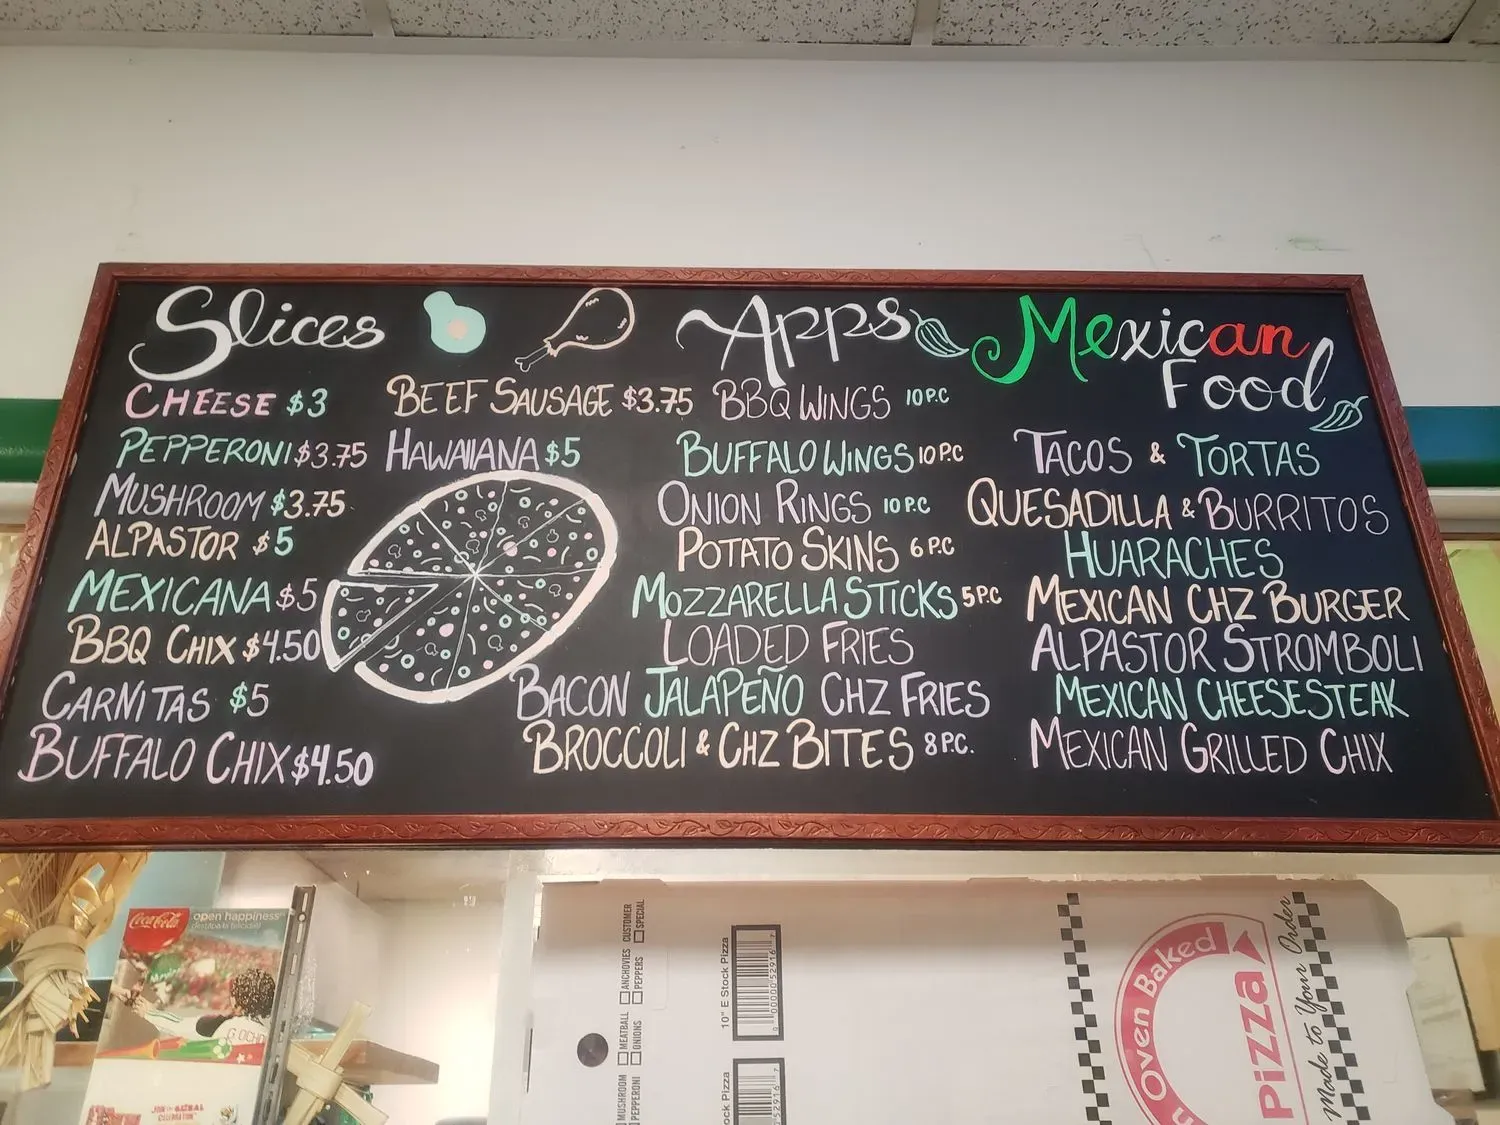 Slices
CHEESE $3
PEPPERONI $3.75
MUSHROOM $3.75
ALPASTOR $5
MEXICANA $5
BBQ CHIX $4.50
CARNITAS $5
BUFFALO CHIX $4.50
BEEF SAUSAGE $3.75
HAWAIIANA $5
Apps
BBQ WINGS 10 P.C
BUFFALO WINGS 10 P.C
ONION RINGS 10 P.C
POTATO SKINS 6 P.C
MOZZARELLA STICKS 5 P.C
LOADED FRIES
BACON JALAPEÑO CHZ FRIES
BROCCOLI & CHZ BITES 8 P.C.
Mexican
Food
TACOS & TORTAS
QUESADILLA & BURRITOS
HUARACHES
MEXICAN CHZ BURGER
ALPASTOR STROMBOLI
MEXICAN CHEESESTEAK
MEXICAN GRILLED CHIX
Coca-Cola
open happiness
destapa la felicidad
G.OCHO
CUSTOMER
SPECIAL
ANCHOVIES
PEPPERS
MEATBALL
ONIONS
MUSHROOM
PEPPERONI
10" E Stock Pizza
Stock Pizza
Oven Baked
PiZZa
Made to Your Order